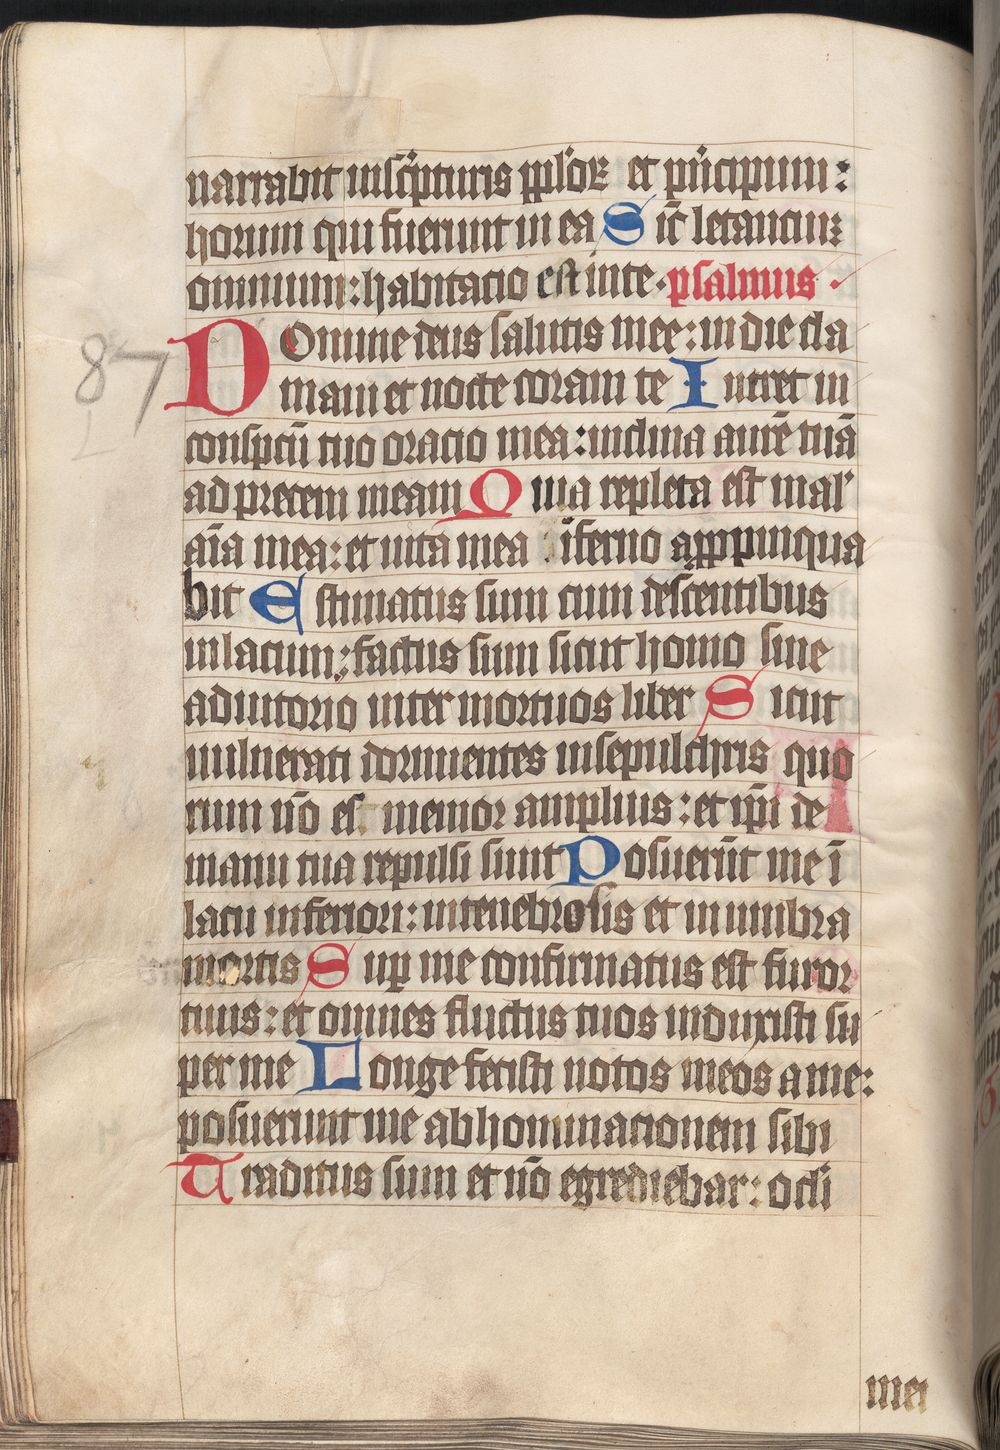 narrabit inscͥpturis ppl'oꝝ et pͥncipum:
horum qui fuerunt in ea Sic̄ letanciūꝫ
omnium: habitacio est inte. psalmus.
87 DOmine deus salutis mee: in die cla
maui et nocte coram te Intret in
conspcū tuo oracio mea: inclina aurē tuā
ad precem meam Quia repleta est mal'
aīa mea: et uita mea īferno appꝓpinqua
bit Estimatus sum cum descentibus
in lacum: factus sum sicut homo sine
adiutorio inter mortuos liber Sicut
uulnerati dormientes in sepulchris quo
rum nō es memor amplius: et ip̄i de
manu tua repulsi sunt Posuerūt me ī
lacu inferiori: in tenebrosis et in umbra
mortis Suꝑ me confirmatus est furor
tuus: et omnes fluctus tuos induxisti su
per me Longe fecisti notos meos a me:
posuerunt me abhominacionem sibi
Traditus sum et nō egrediebar: ocli
mei